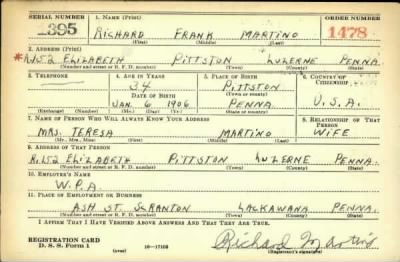 SERIAL NUMBER 1. NAME (Print) ORDER NUMBER
395 RICHARD FRANK MARTINO 1478
(First) (Middle) (Last)
2. ADDRESS (Print)
*R.152 ELIZABETH PITTSTON LUZERNE PENNA.
(Number and street or R. F. D. number) (Town) (County) (State)
3. TELEPHONE 4. AGE IN YEARS 5. PLACE OF BIRTH 6. COUNTRY OF CITIZENSHIP
34 PITTSTON
DATE OF BIRTH (Town or county)
JAN. 6 1906 PENNA. U.S.A.
(Exchange) (Number) (Mo.) (Day) (Yr.) (State or country)
7. NAME OF PERSON WHO WILL ALWAYS KNOW YOUR ADDRESS 8. RELATIONSHIP OF THAT PERSON
MRS. TERESA MARTINO WIFE
(Mr., Mrs., Miss) (First) (Middle) (Last)
9. ADDRESS OF THAT PERSON
R.152 ELIZABETH PITTSTON LUZERNE PENNA.
(Number and street or R. F. D. number) (Town) (County) (State)
10. EMPLOYER'S NAME
W.P.A.
11. PLACE OF EMPLOYMENT OR BUSINESS
ASH ST. SCRANTON LACKAWANA PENNA.
(Number and street or R. F. D. number) (Town) (County) (State)
I AFFIRM THAT I HAVE VERIFIED ABOVE ANSWERS AND THAT THEY ARE TRUE.
REGISTRATION CARD
D. S. S. Form 1 16—17105 Richard Martino
(Registrant's signature)